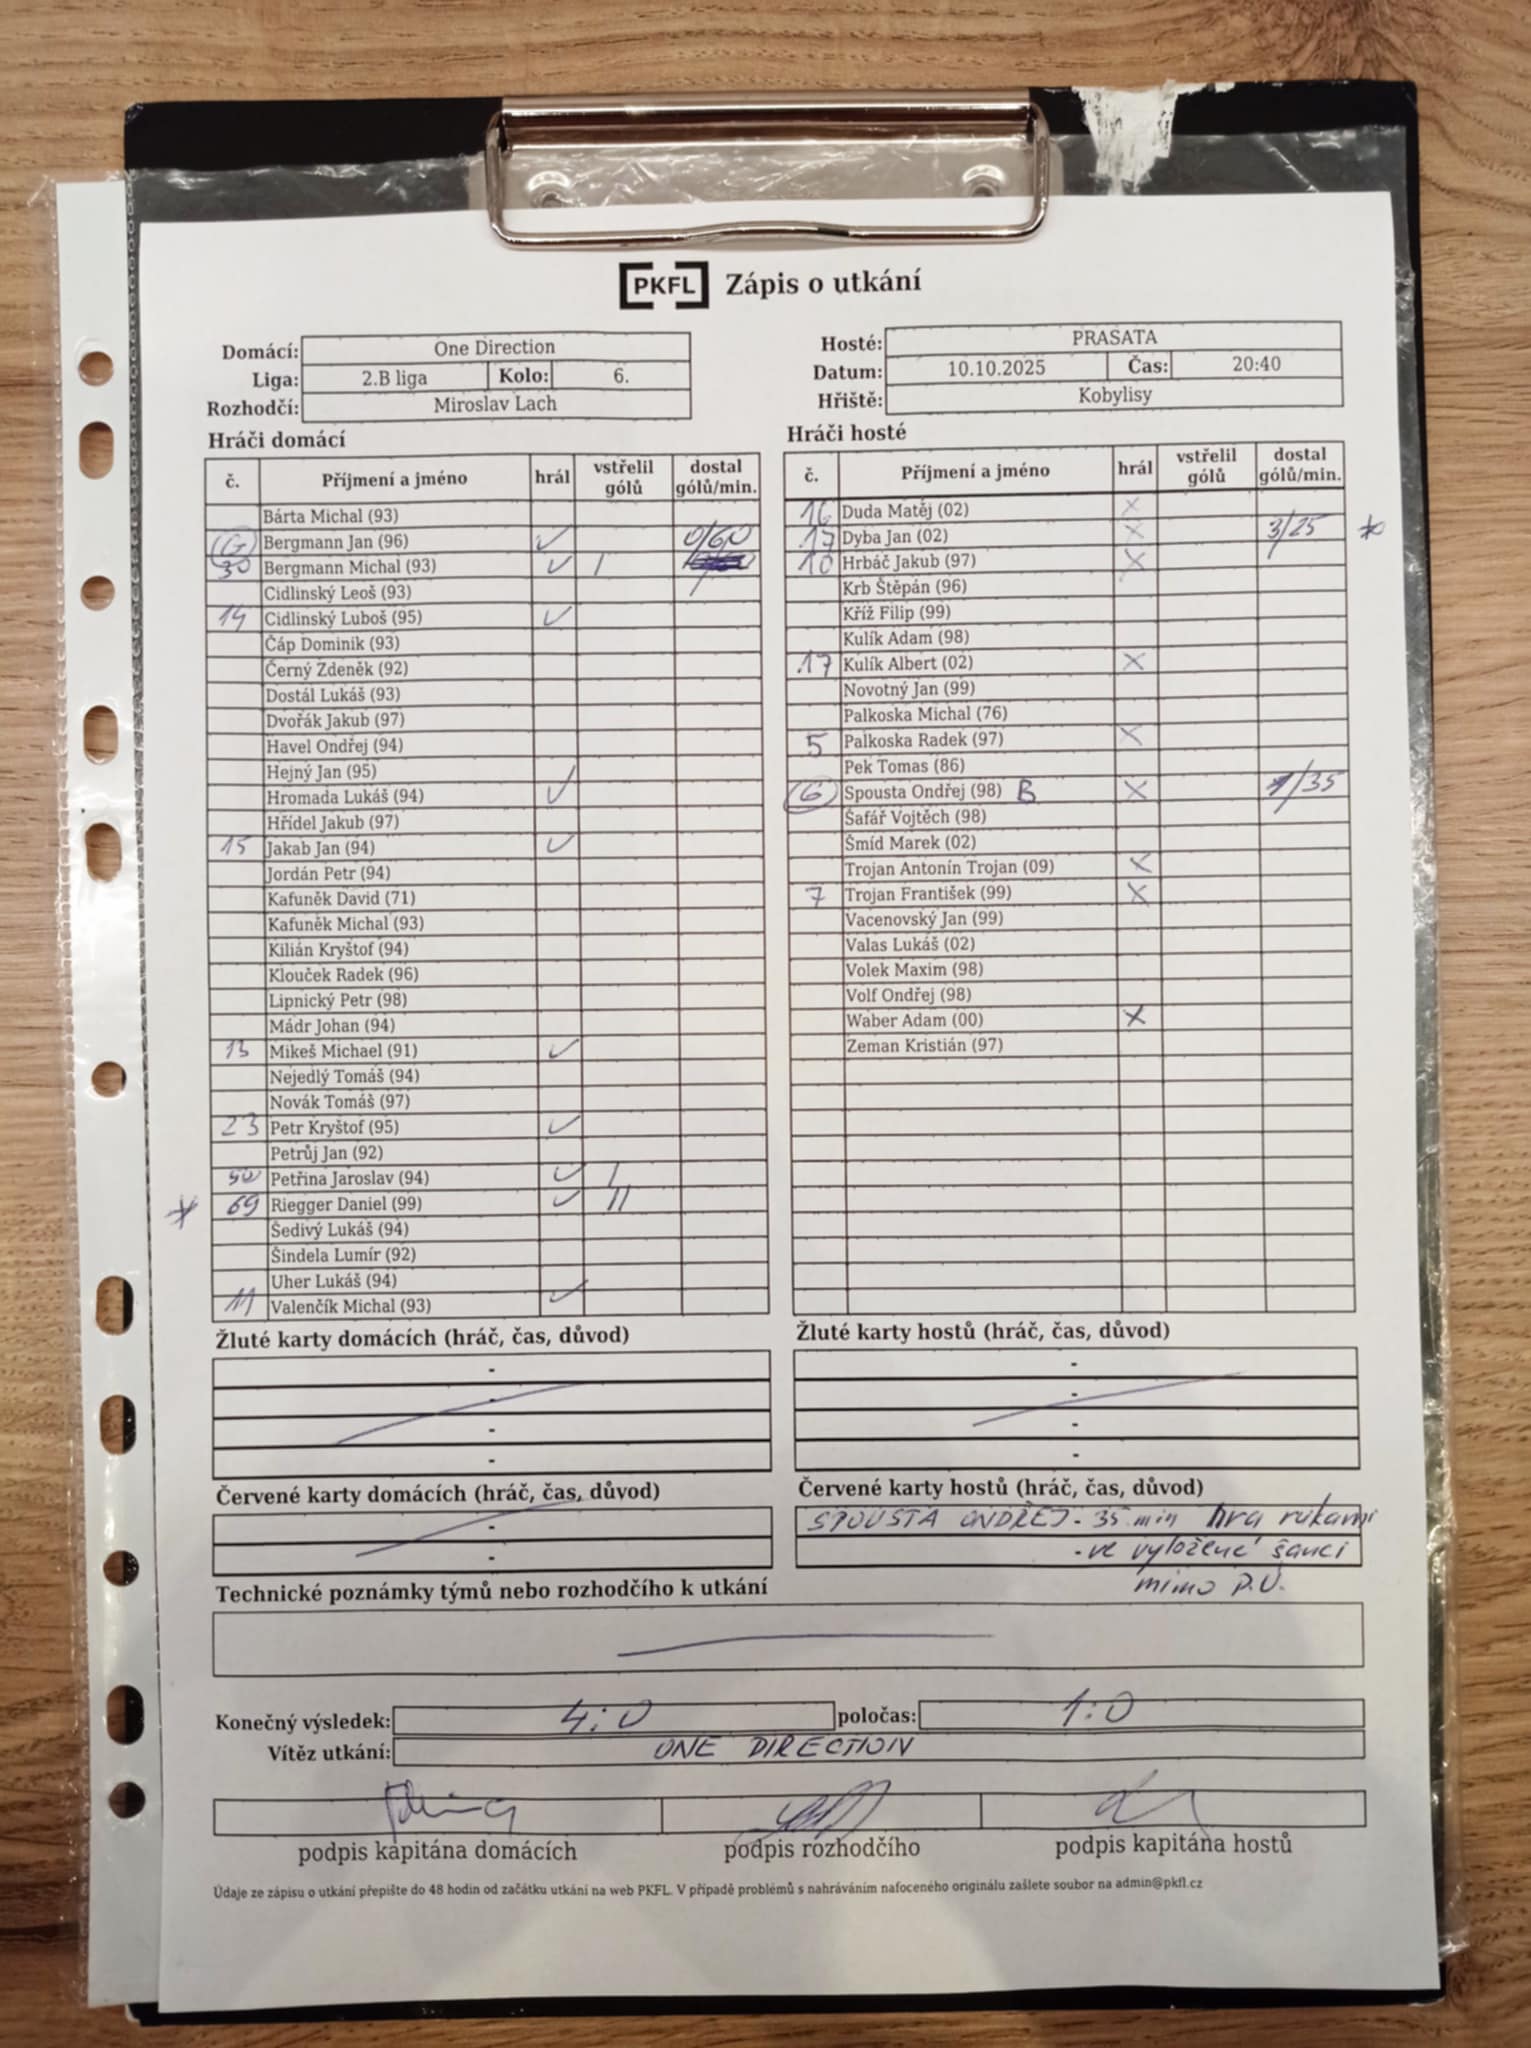 PKFL Zápis o utkání
Domácí: One Direction
Liga: 2.B liga Kolo: 6.
Rozhodčí: Miroslav Lach
Hosté: PRASATA
Datum: 10.10.2025 Čas: 20:40
Hřiště: Kobylisy
Hráči domácí
č. Příjmení a jméno hrál vstřelil gólů dostal gólů/min.
Bárta Michal (93)
G Bergmann Jan (96) ✓ 0/60
30 Bergmann Michal (93) ✓ |
Cidlinský Leoš (93)
14 Cidlinský Luboš (95) ✓
Čáp Dominik (93)
Černý Zdeněk (92)
Dostál Lukáš (93)
Dvořák Jakub (97)
Havel Ondřej (94)
Hejný Jan (95)
Hromada Lukáš (94) ✓
Hřídel Jakub (97)
15 Jakab Jan (94) ✓
Jordán Petr (94)
Kafuněk David (71)
Kafuněk Michal (93)
Kilián Kryštof (94)
Klouček Radek (96)
Lipnický Petr (98)
Mádr Johan (94)
13 Mikeš Michael (91) ✓
Nejedlý Tomáš (94)
Novák Tomáš (97)
23 Petr Kryštof (95) ✓
Petrůj Jan (92)
50 Petřina Jaroslav (94) ✓ |
* 69 Riegger Daniel (99) ✓ ||
Šedivý Lukáš (94)
Šindela Lumír (92)
Uher Lukáš (94)
11 Valenčík Michal (93) ✓
Hráči hosté
č. Příjmení a jméno hrál vstřelil gólů dostal gólů/min.
16 Duda Matěj (02) X
Dyba Jan (02) X 3/25 *
10 Hrbáč Jakub (97) X
Krb Štěpán (96)
Kříž Filip (99)
Kulík Adam (98)
17 Kulík Albert (02) X
Novotný Jan (99)
Palkoska Michal (76)
5 Palkoska Radek (97) X
Pek Tomas (86)
G Spousta Ondřej (98) B X 1/35
Šafář Vojtěch (98)
Šmíd Marek (02)
Trojan Antonín Trojan (09) X
7 Trojan František (99) X
Vacenovský Jan (99)
Valas Lukáš (02)
Volek Maxim (98)
Volf Ondřej (98)
Waber Adam (00) X
Zeman Kristián (97)
Žluté karty domácích (hráč, čas, důvod)
-
-
-
-
Žluté karty hostů (hráč, čas, důvod)
-
-
-
-
Červené karty domácích (hráč, čas, důvod)
-
-
Červené karty hostů (hráč, čas, důvod)
SPOUSTA ONDŘEJ - 35. min hra rukami
- ve vyložené šanci
mimo P.Ú.
Technické poznámky týmů nebo rozhodčího k utkání
Konečný výsledek: 4:0 poločas: 1:0
Vítěz utkání: ONE DIRECTION
podpis kapitána domácích podpis rozhodčího podpis kapitána hostů
Údaje ze zápisu o utkání přepište do 48 hodin od začátku utkání na web PKFL. V případě problémů s nahráváním nafoceného originálu zašlete soubor na admin@pkfl.cz